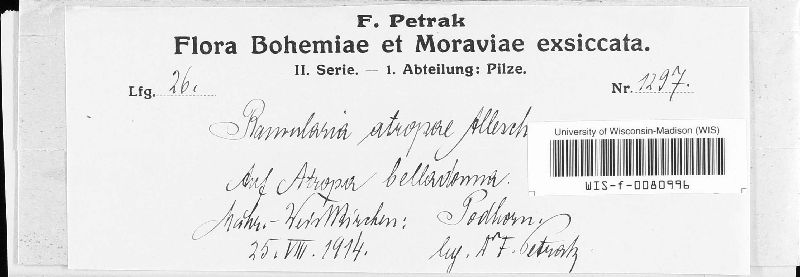 F. Petrak
Flora Bohemiae et Moraviae exsiccata.
II. Serie. — 1. Abteilung: Pilze.
Lfg. 26. Nr. 1297.
Ramularia atropae Allesch
University of Wisconsin-Madison (WIS)
WIS-f-0080996
Auf Atropa belladonna.
Mähr.-Weisskirchen: Podhorn.
25. VIII. 1914. lg. Dr F. Petrak